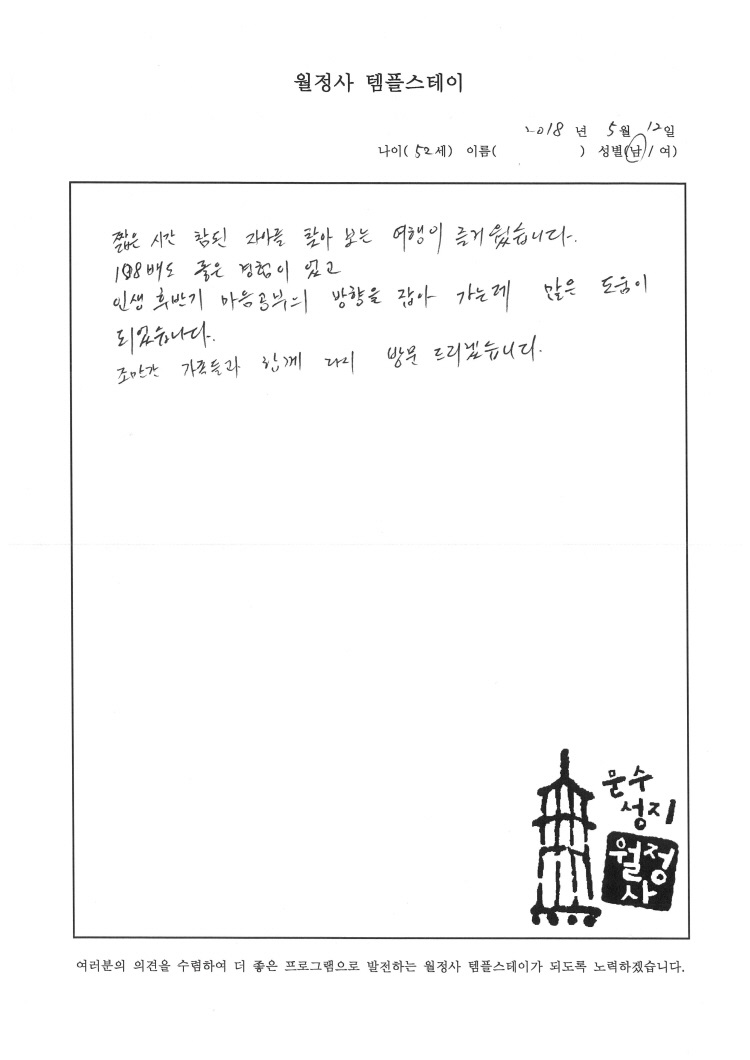 월정사 템플스테이
2018 년 5월 12일
나이( 52세) 이름( ) 성별(남 / 여)
짧은 시간 참된 자아를 찾아 보는 여행이 즐거웠습니다.
108배도 좋은 경험이 었고
인생 후반기 마음공부의 방향을 잡아 가는데 많은 도움이
되었습니다.
조만간 가족들과 함께 다시 방문 드리겠습니다.
문수
성지
월정
사
여러분의 의견을 수렴하여 더 좋은 프로그램으로 발전하는 월정사 템플스테이가 되도록 노력하겠습니다.